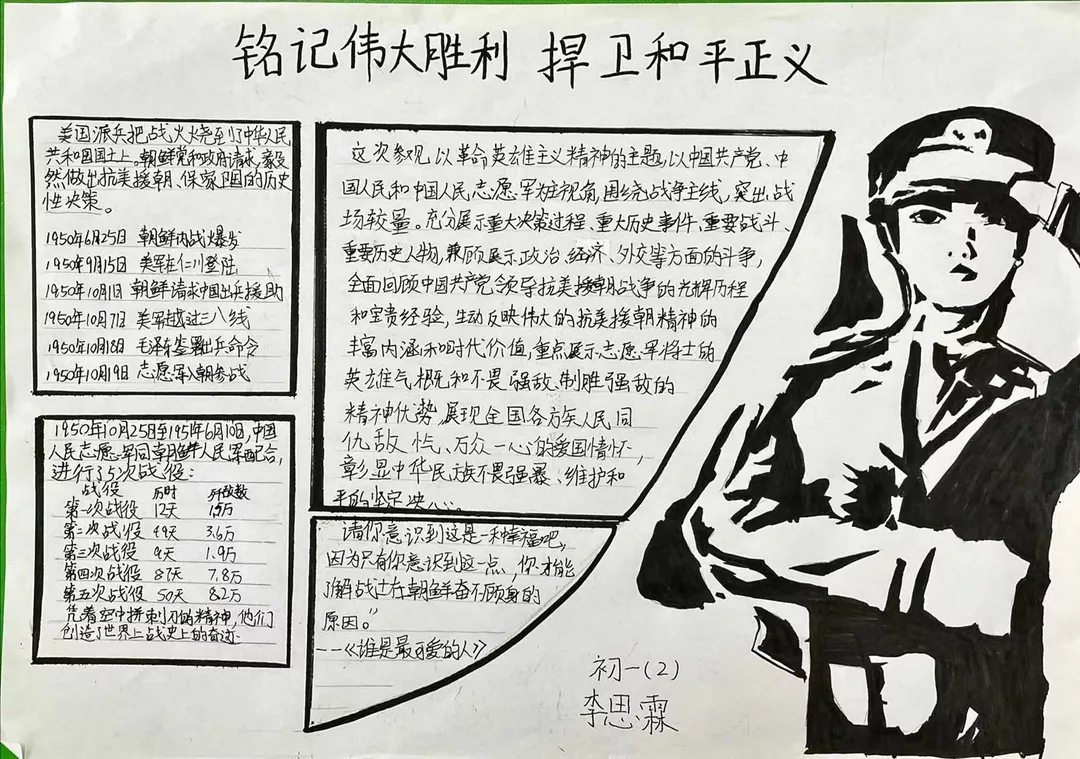 铭记伟大胜利 捍卫和平正义
美国派兵把战火烧到了中华人民
共和国国土上。朝鲜党和政府请求,毅
然做出抗美援朝、保家卫国的历史
性决策。
1950年6月25日 朝鲜内战爆发
1950年9月15日 美军在仁川登陆
1950年10月1日 朝鲜请求中国出兵援助
1950年10月7日 美军越过三八线
1950年10月18日 毛泽东签署出兵命令
1950年10月19日 志愿军入朝参战
1950年10月25日至1951年6月10日,中国
人民志愿军同朝鲜人民军配合,
进行了5次战役:
战役 历时 歼敌数
第一次战役 12天 1.5万
第二次战役 49天 3.6万
第三次战役 9天 1.9万
第四次战役 87天 7.8万
第五次战役 50天 8.2万
凭着空中拼刺刀的精神,他们
创造了世界上战史上的奇迹
这次参观,以革命英雄主义精神的主题,以中国共产党、中
国人民和中国人民志愿军为视角,围绕战争主线,突出战
场较量。充分展示重大决策过程、重大历史事件、重要战斗、
重要历史人物,兼顾展示政治、经济、外交等方面的斗争,
全面回顾中国共产党领导抗美援朝战争的光辉历程
和宝贵经验,生动反映伟大的抗美援朝精神的
丰富内涵和时代价值,重点展示志愿军将士的
英雄气概和不畏强敌、制胜强敌的
精神优势,展现全国各方族人民同
仇敌忾、万众一心的爱国情怀,
彰显中华民族不畏强暴、维护和
平的坚定决心。
请你意识到这是一种幸福吧,
因为只有你意识到这一点,你才能
了解战士在朝鲜奋不顾身的
原因。”
——《谁是最可爱的人》
初一(2)
李思霖